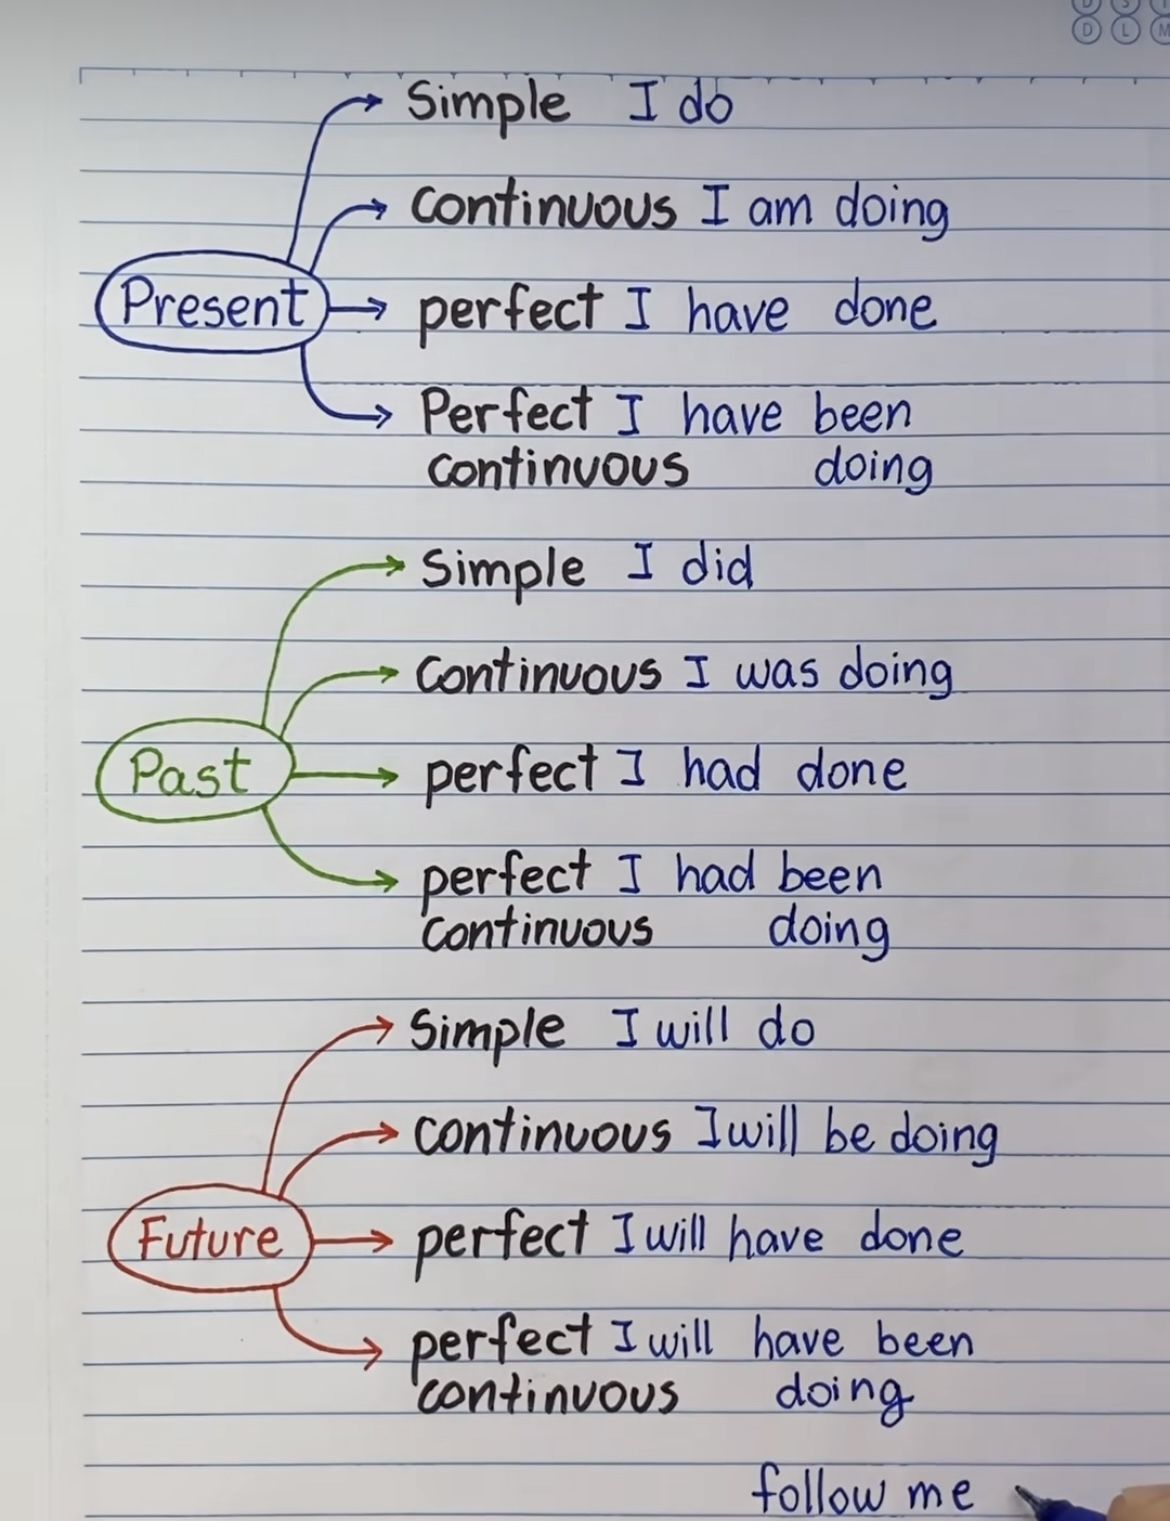 D S T
D L M
Simple I do
continuous I am doing
Present
perfect I have done
Perfect I have been
continuous doing
Simple I did
Continuous I was doing
Past
perfect I had done
perfect I had been
continuous doing
Simple I will do
continuous I will be doing
Future
perfect I will have done
perfect I will have been
continuous doing
follow me